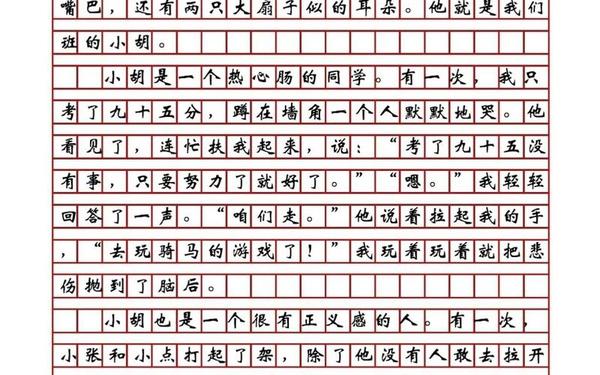 嘴巴，还有两只大扇子似的耳朵。他就是我们
班的小胡。
小胡是一个热心肠的同学。有一次，我只
考了九十五分，蹲在墙角一个人默默地哭。他
看见了，连忙扶我起来，说：“考了九十五没
有事，只要努力了就好了。”“嗯。”我轻轻
回答了一声。“咱们走。”他说着拉起我的手
，“去玩骑马的游戏了！”我玩着玩着就把悲
伤抛到了脑后。
小胡也是一个很有正义感的人。有一次，
小张和小点打起了架，除了他没有人敢去拉开